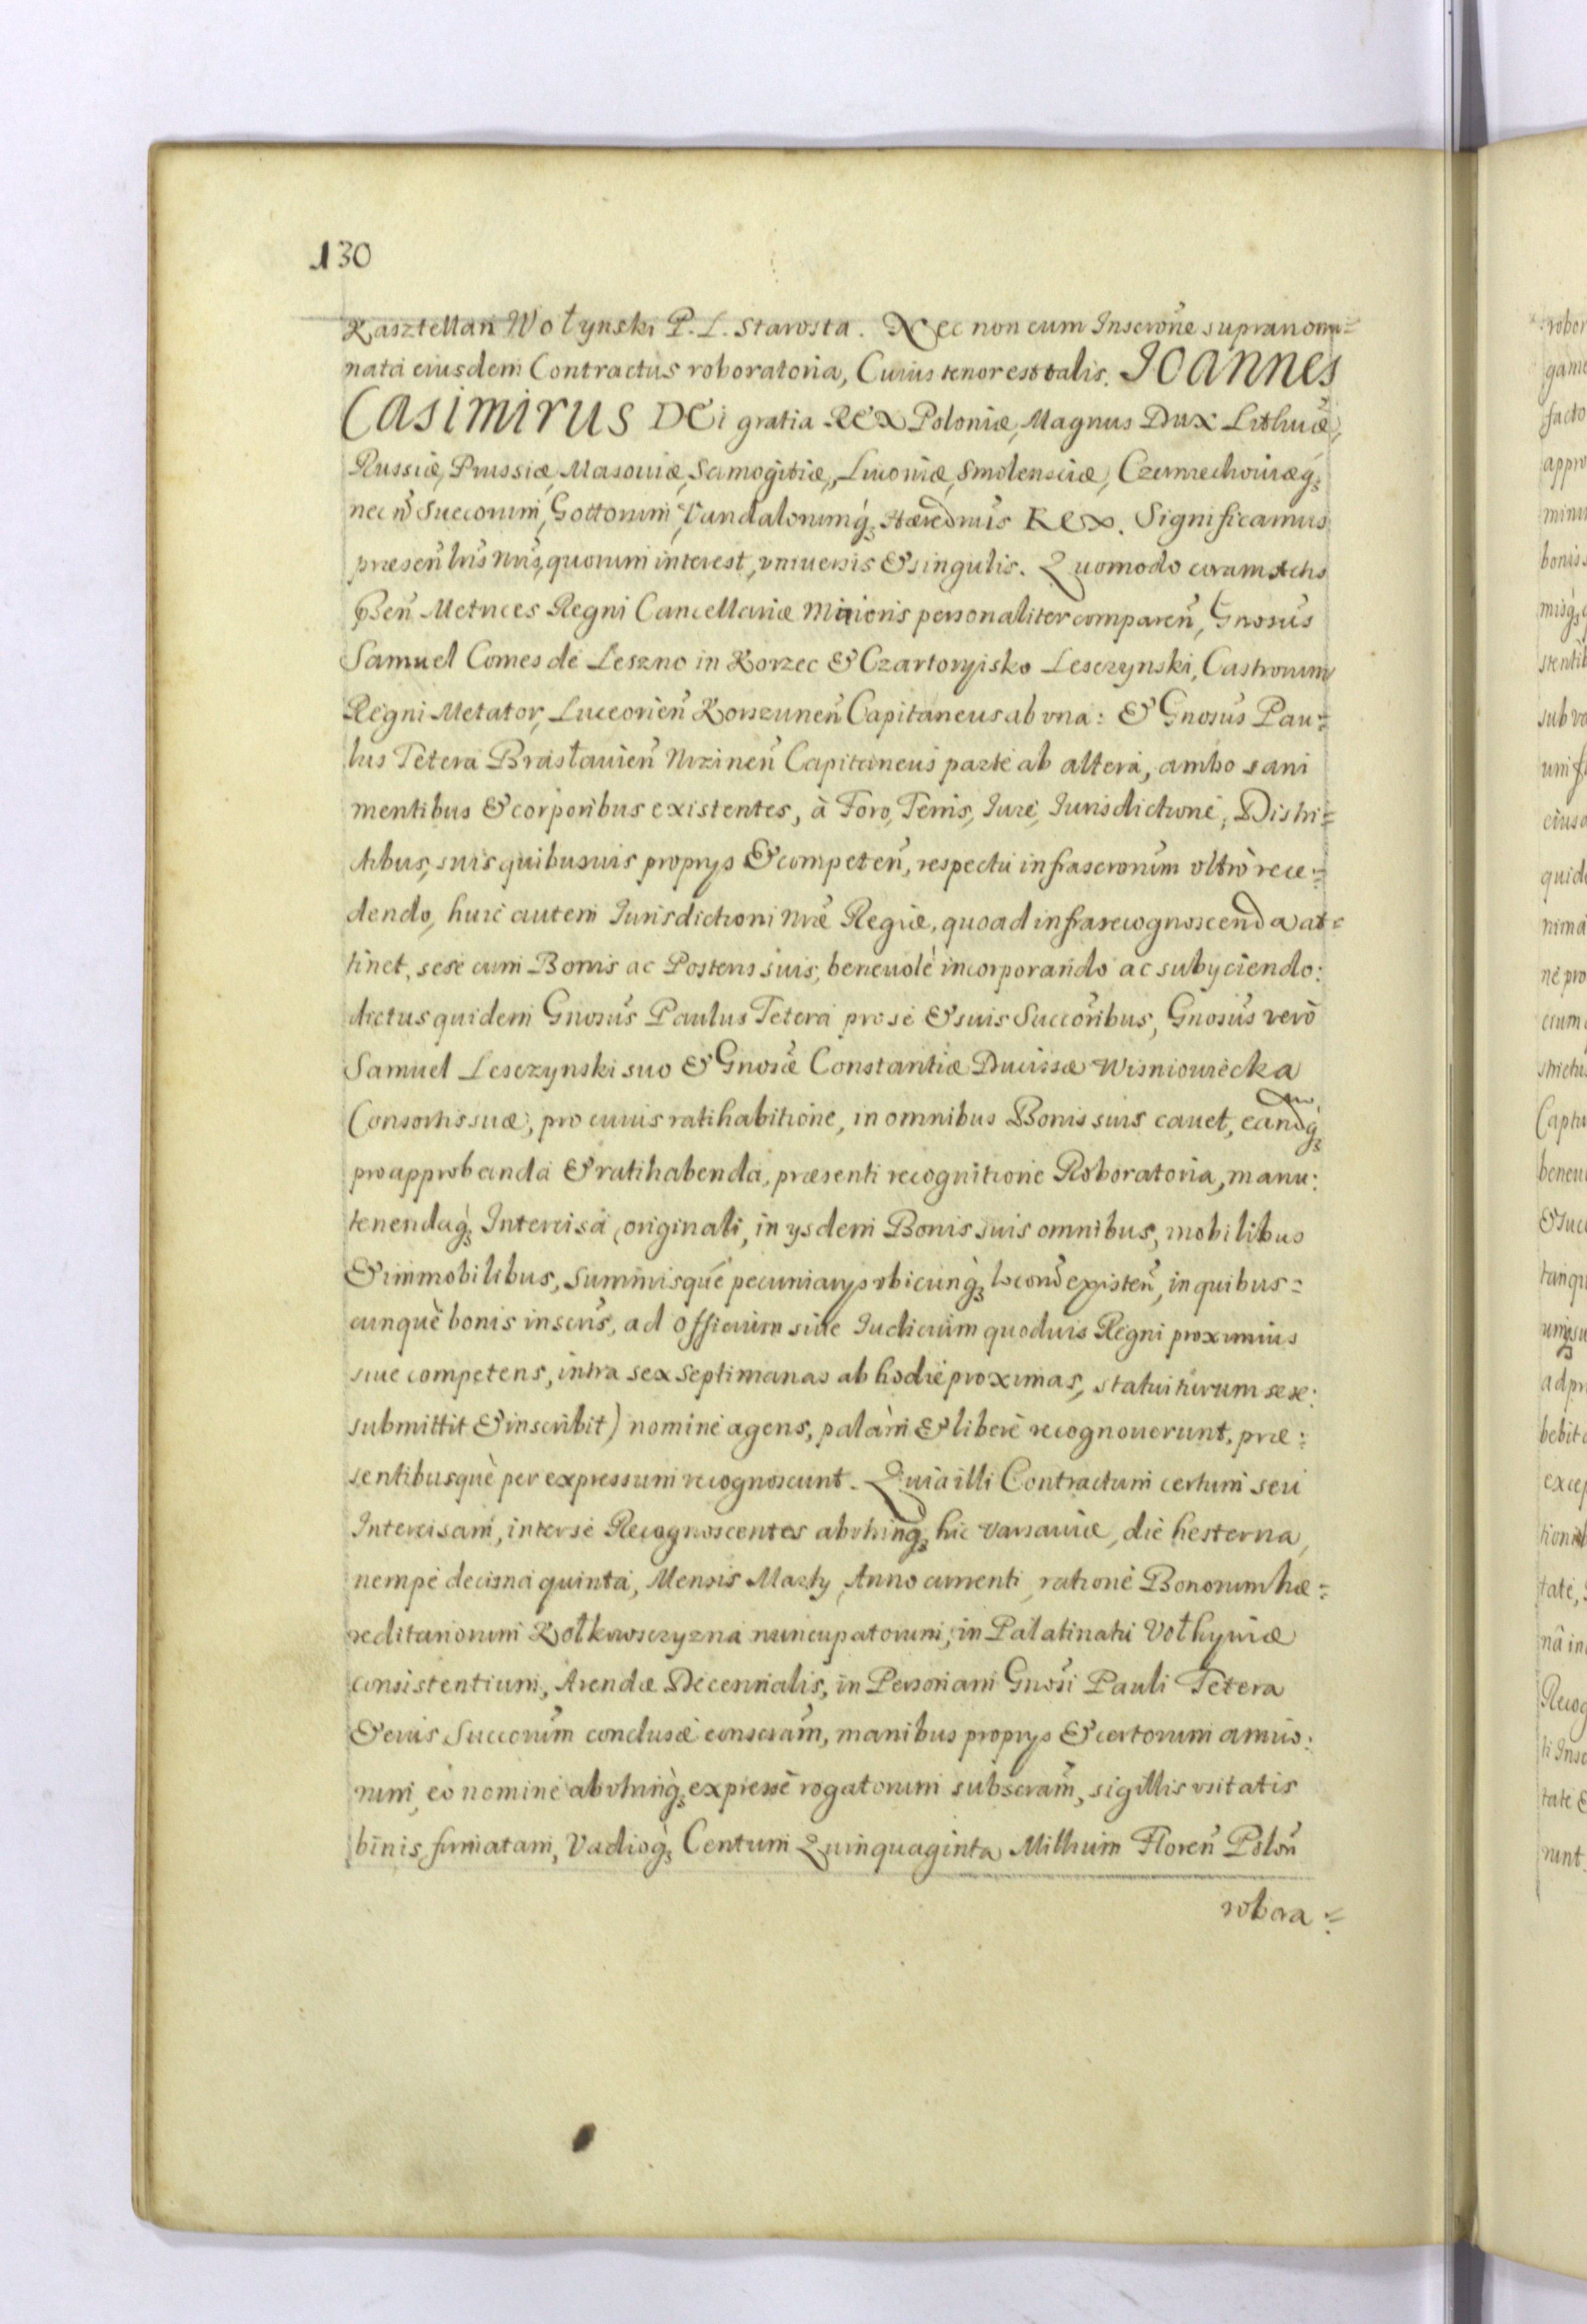 130
Kasztellan Wołynski P. L. Starosta. Nec non cum Inscrõne supranomi=
nata eiusdem Contractus roboratoria, Cuius tenor est talis. JOANNES
CASIMIRUS DEi gratia REX Poloniæ, Magnus Dux Lithuæ,
Russiæ, Prussiæ, Masouiæ, Samogitiæ, Liuoniæ, Smolensciæ, Czerniechouiæq̃
nec ñ Suecorum, Gottorum, Vandalorumq̃ Hæredrius Rex. Significamus
præsen̄ lris nr̃is, quorum interest, vniuersis & singulis. Quomodo coram Actis
p̃sen̄ Metrices Regni Cancellariæ Minoris personaliter comparen̄, Gnosus
Samuel Comes de Leszno in Korzec & Czartoryisko Lesczynski, Castrorum
Regni Metator, Luceorien̄ Korszunen̄ Capitaneus ab vna: & Gnosus Pau=
lus Tetera Brasłauien̄ Nizinen̄ Capitaneus parte ab altera, ambo sani
mentibus & corporibus existentes, à Foro, Terris, Jure, Jurisdictione, Distri=
ctibus, suis quibusuis proprys & competen̄, respectu infrascrorum vltrò rece=
dendo, huic autem Jurisdictioni nr̃æ Regiæ, quoad infrarecognoscenda at=
tinet, sese cum Bonis ac Posteris suis, beneuolè incorporando ac subyciendo:
dictus quidem Gnosus Paulus Tetera pro se & suis Succoribus, Gnosus verò
Samuel Lesczynski suo & Gnosæ Constantiæ Ducissæ Wisniowiecka
Consortis suæ, pro cuius ratihabitione, in omnibus Bonis suis cauet, eandq̃
pro approbanda & ratihabenda, præsenti recognitione Roboratoria, manu:
tenendaq̃ Intercisa originali, in ysdem Bonis suis omnibus, mobilibus
& immobilibus, Summisque pecuniarys vbicunq̃ locorũ existen̄, in quibus=
cunquè bonis inscris, ad Officium siue Judicium quoduis Regni proximius
siue competens, intra sex septimanas ab hodie proximas, statuiturum sese:
submittit & inscribit) nomine agens, palàm & liberè recognouerunt, præ:
sentibusquè per expressum recognoscunt. Quia illi Contractum certum seu
Intercisam, inter se Recognoscentes abvtrinq̃ hic Varsauiæ, die hesterna,
nempe decima quinta, Mensis Marty, Anno currenti, ratione Bonorum hæ=
reditariorum Kołkowsczyzna nuncupatorum, in Palatinatu Vołhyniæ
consistentium, Arendæ Decennalis, in Personam Gnosi Pauli Tetera
& eius Succorum conclusæ conscram, manibus proprys & certorum amico:
rum, eo nomine abvtrinq̃ expressè rogatorum subscram, sigillis vsitatis
binis firmatam, Vadioq̃ Centum Quinquaginta Millium Floren̄ Polon̄
robora=